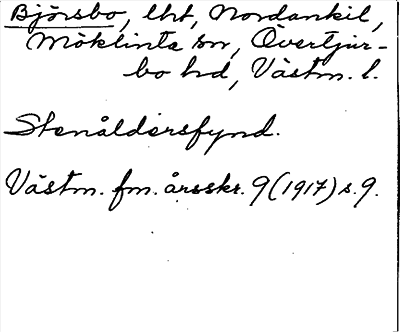 Björsbo, lht, Nordankil,
Möklinta sn, Övertjur-
bo hd, Västm. l.
Stenåldersfynd.
Västm. fm. årsskr. 9 (1917) s. 9.